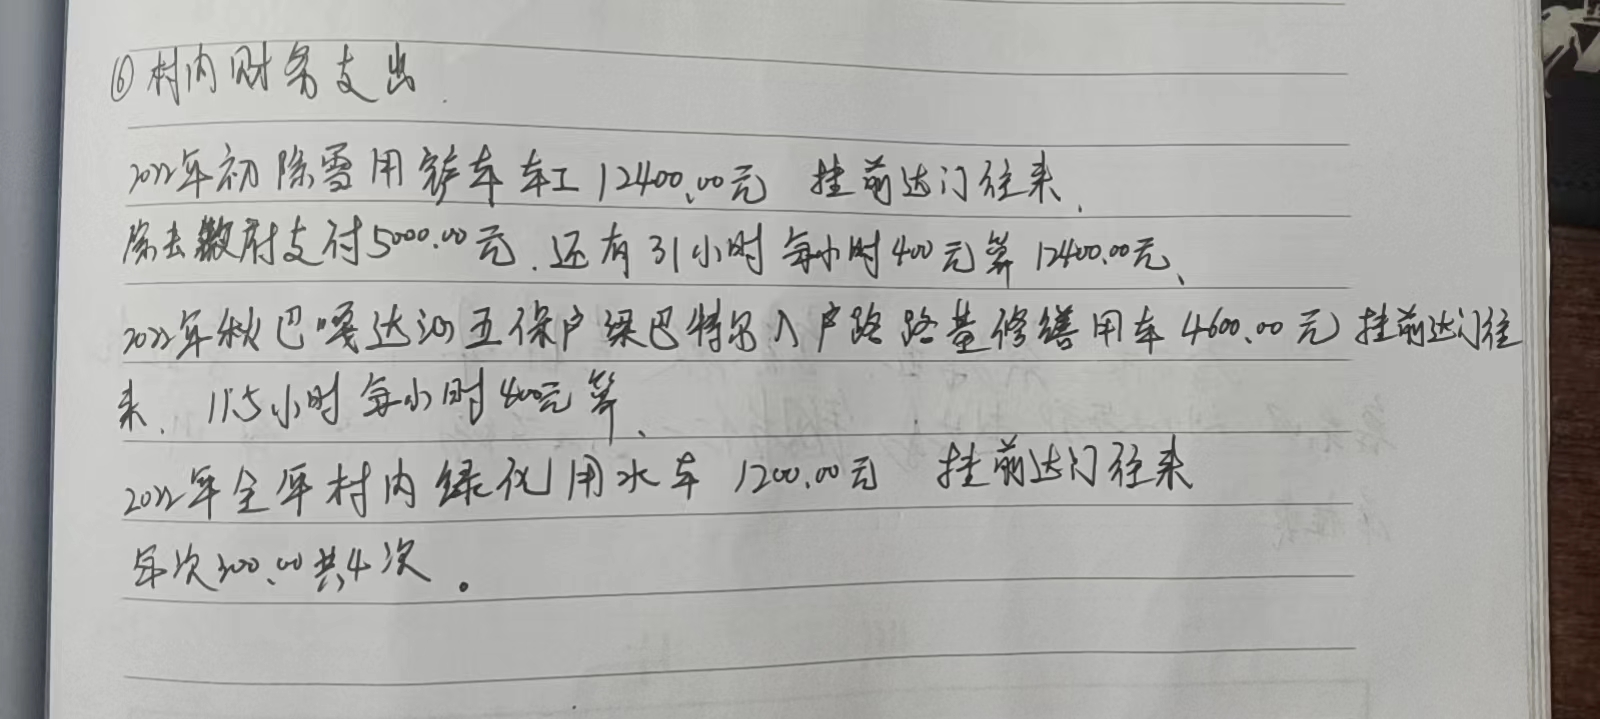 ⑥村内财务支出.
2022年初除雪用铲车车工12400.00元 挂前达门往来.
除去政府支付5000.00元.还有31小时每小时400元算12400.00元、
2022年秋巴嘎达沟五保户梁巴特尔入户路路基修缮用车4600.00元挂前达门往
来. 11.5小时每小时400元算、
2022年全年村内绿化用水车 1200.00元 挂前达门往来
每次300.00共4次。